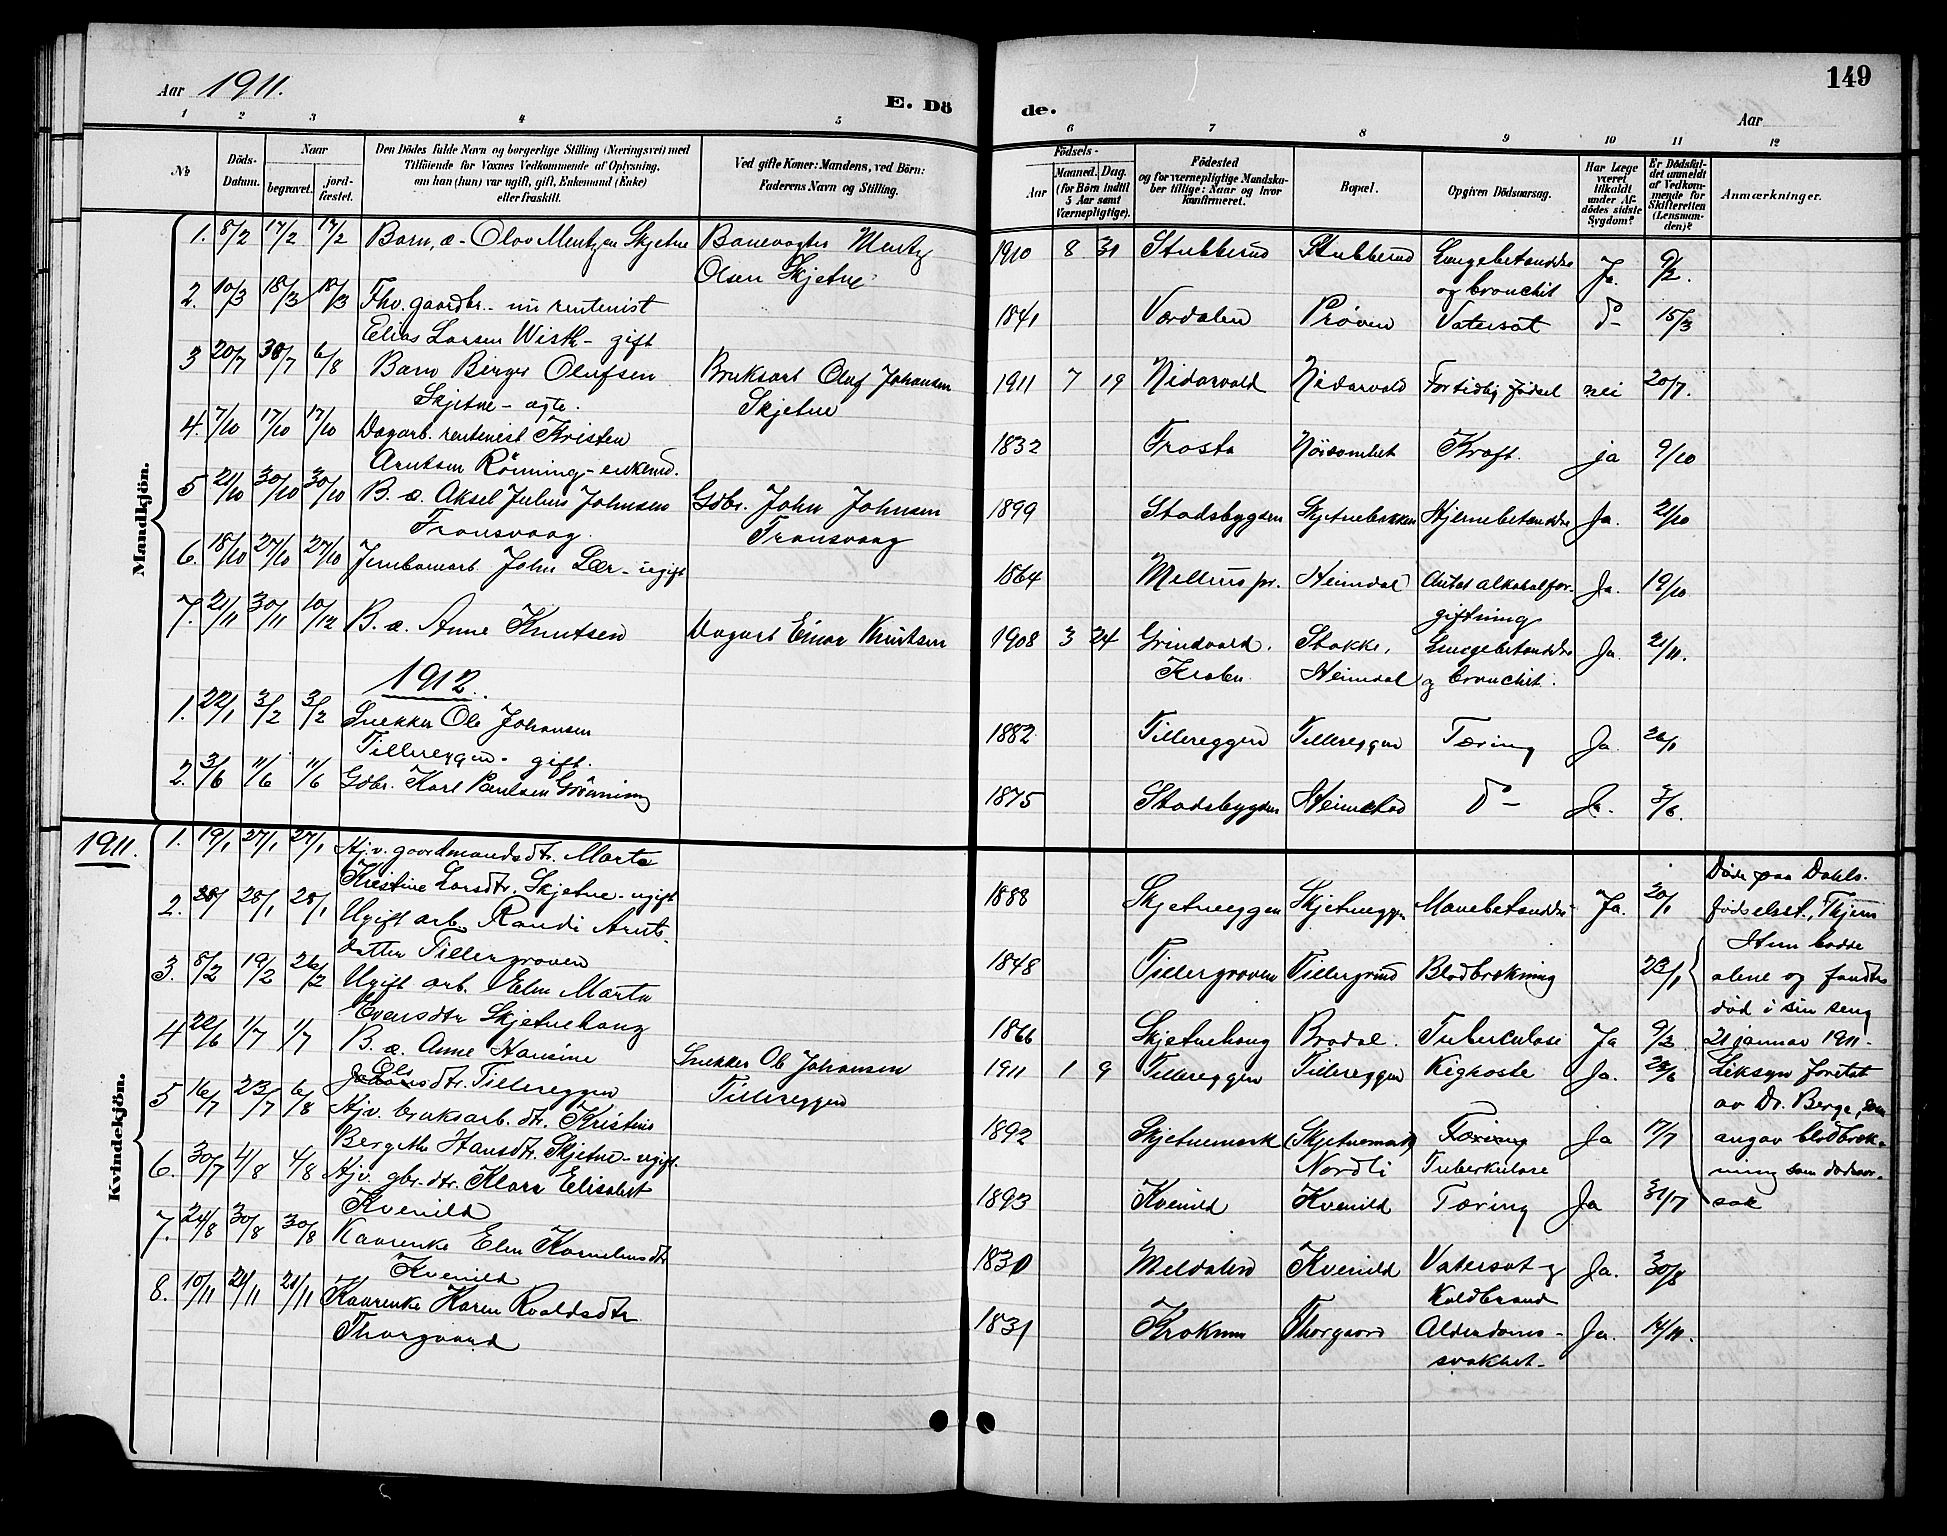 Aar 1911.
E. Dö
1 2 3 4 5
№
Döds-Datum.
Naar
begravet.
jord-fæstet.
Den Dödes fulde Navn og borgerlige Stilling (Næringsvei) med
Tilföiende for Voxnes Vedkommende af Oplysning,
om han (hun) var ugift, gift, Enkemand (Enke)
eller fraskilt.
Ved gifte Koner: Mandens, ved Börn:
Faderens Navn og Stilling.
Mandkjön.
1. 8/2 17/2 17/2 Barn, æ. Olav Mentzen Skjetne Banevogter Mentz
Olsen Skjetne
2. 10/3 18/3 18/3 Fhv. gaardbr. nu rentenist
Elias Larsen Wisth - gift
3 20/7 30/7 6/8 Barn Birger Olufsen Bruksarb Oluf Johansen
Skjetne - ægte. Skjetne
4. 7/10 17/10 17/10 Dagarb. rentenist Kristen
Arntsen Rönning - enkem.
5 21/10 30/10 30/10 B. æ. Aksel Julius Johnsen Gdbr. John Johnsen
Transvaag. Transvaag
6. 18/10 27/10 27/10 Jernbanearb. John Lær - ugift
7. 21/11 30/11 10/12 B. æ. Anne Knutsen Dagarb Einar Knutsen
1912.
1. 22/1 3/2 3/2 Snekker Ole Johansen
Tillereggen - gift.
2. 3/6 11/6 11/6 Gdbr. Karl Paulsen Grönning
1911.
Kvindekjön.
1. 19/1 27/1 27/1 Hjv. gaardmandsdtr. Marta
Kristine Larsdtr. Skjetne - ugift
2. 28/1 28/1 Ugift arb. Randi Arnts-
datter Tillergroven
3. 8/2 19/2 26/2 Ugift arb. Elen Marta
Evensdtr Skjetnehaug
4 22/6 1/7 1/7 B. æ. Anne Hansine Snekker Ole Johansen
Ols
dtr. Tillereggen Tillereggen
5 16/7 23/7 6/8 Hjv. bruksarb. dtr. Kristine
Bergitte Hansdtr. Skjetne - ugift.
6. 30/7 4/8 4/8 Hjv. gbr. dtr. Klara Elisabet
Kvenild
7. 24/8 30/8 30/8 Kaarenke Elen Korneliusdtr
Kvenild
8. 10/11 21/11 21/11 Kaarenke Karen Roaldsdtr
Thorgaard
149
de.
Aar
6 7 8 9 10 11 12
Födsels-
Aar
Maaned. Dag.
(for Börn indtil
5 Aar samt
Værnepligtige).
Födested
og for værnepligtige Mandska-
ber tillige: Naar og hvor
konfirmeret.
Bopæl.
Opgiven Dödsaarsag.
Har Læge
været
tilkaldt
under Af-
dödes sidste
Sygdom?
Er Dödsfal-
det anmeldt
af Vedkom-
mende for
Skifteretten
(Lensman-
den)?
Anmærkninger.
1910 8 31 Stubberud Stubberud Lungebetændelse
og bronchit Ja. 9/2.
1841 Værdalen Prøven Vatersot do - 15/3
1911 7 19 Nidarvold Nidarvold Fortidlig födsel nei 20/7.
1832 Frosta Nöisomhet Kræft. ja 9/10
1899 Stadsbygden Skjetnebakken Hjernebetændelse Ja. 21/10
1864 Melhus pr. Heimdal alkoholfor-
giftning Ja. 19/10
1908 3 24 Stokke, Lungebetændelse
Heimdal og bronchit. Ja. 21/11.
1882 Tillereggen Tillereggen Tæring Ja. 26/1
1875 Stadsbygden Heimstad do - Ja. 7/6.
1888 Skjetneeggen Skjetneeggen Mavebetændelse Ja. 20/1
1848 Tillergroven Tillergrind Blodbrækning 23/1
1866 Skjetnehaug Brødal. Tuberkulose Ja 9/2.
1911 1 9 Tillereggen Tillereggen Kighoste Ja. 23/6
1892 Skjetnemark (Skjetnemark) Tæring Ja 17/7
Nordli Tuberkulose
1893 Kvenild Kvenild Tæring Ja 31/7
1830 Meldalen Kvenild Vatersot og Ja. 30/8
Koldbrand
1831 Thorgaard Alderdoms- Ja. 14/11.
svakhet -
Döde paa Dahls
födselsst., Thjem
Hun bodde
alene og fandtes
död i sin seng
21 januar 1911.
Liksyn foretat
av Dr. Berge, som
angav blodbræk-
ning som dödsaar-
sak